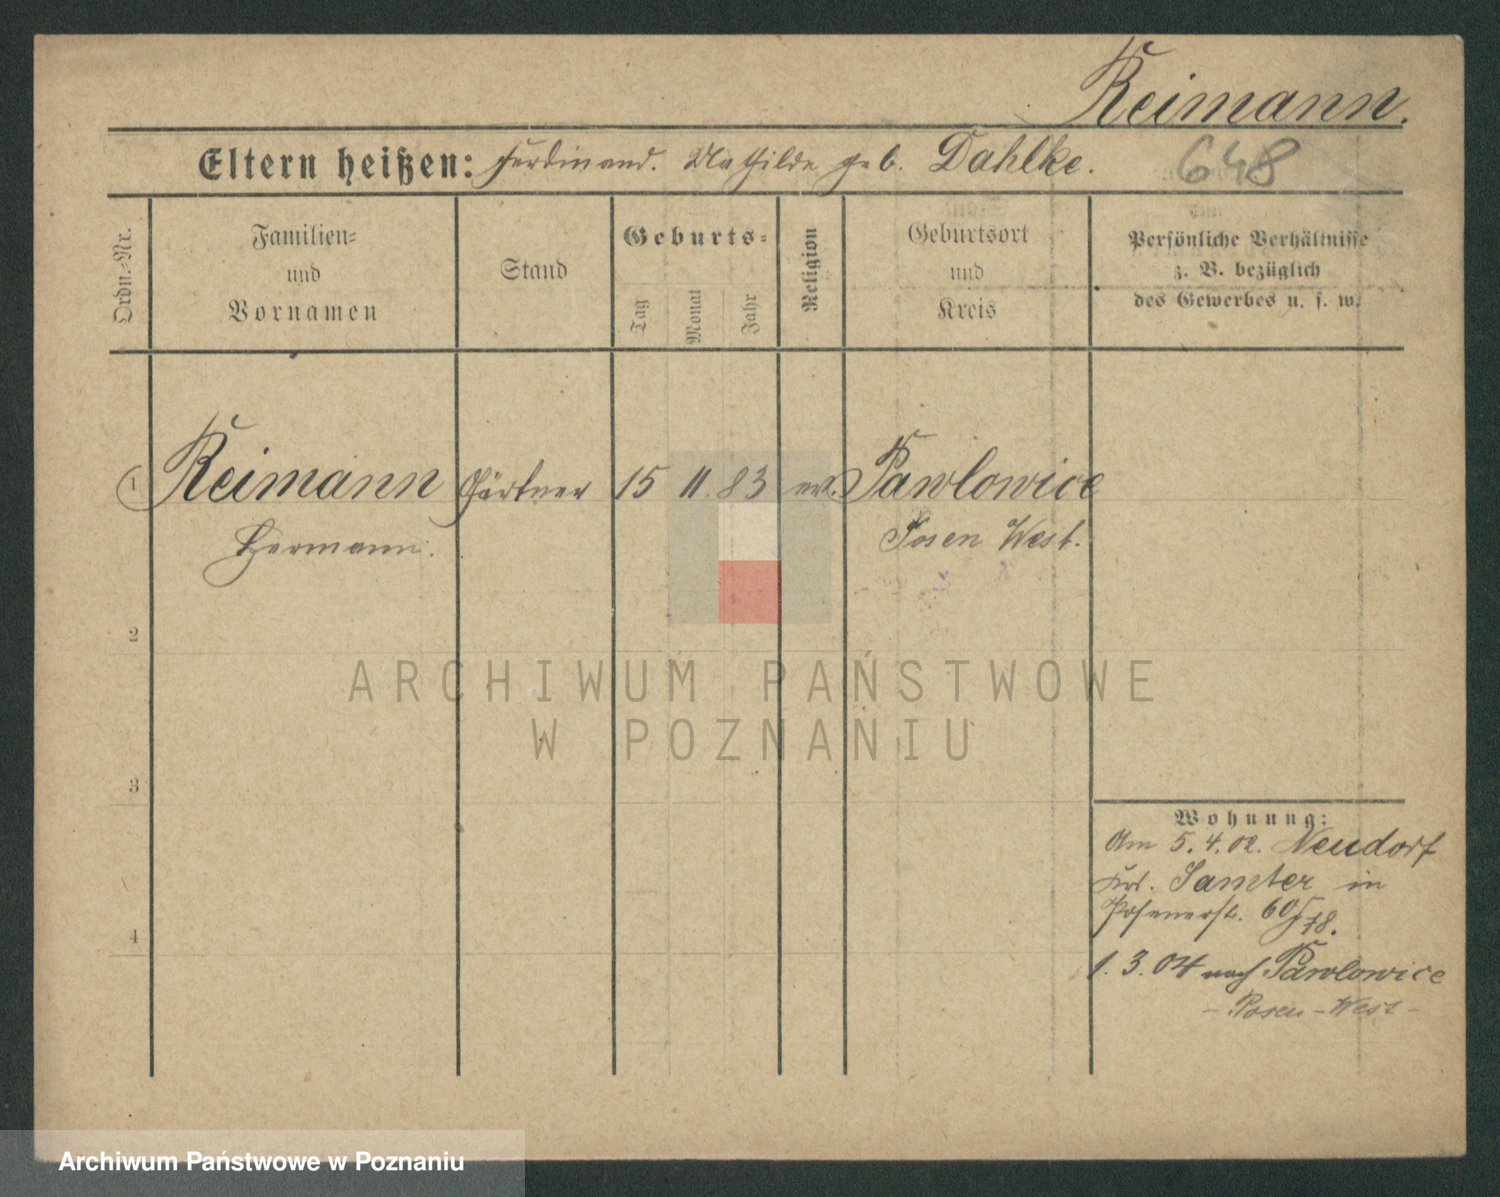 Reimann.
Eltern heißen: Ferdinand. Mathilde geb. Dahlke.
648
Ordn.-Nr.
Familien-
und
Vornamen
Stand
Geburts-
Tag
Monat
Jahr
Religion
Geburtsort
und
Kreis
Persönliche Verhältnisse
z. B. bezüglich
des Gewerbes u. s. w.
1 Reimann Gärtner 15 11. 83 Pawlowice
Hermann. Posen West.
2
3
4
Wohnung:
Am 5. 4. 02. Neudorf
Samter in
Posenerst. 60
1. 3. 04 nach Pawlowice
- Posen - West -
ARCHIWUM PAŃSTWOWE
W POZNANIU
Archiwum Państwowe w Poznaniu